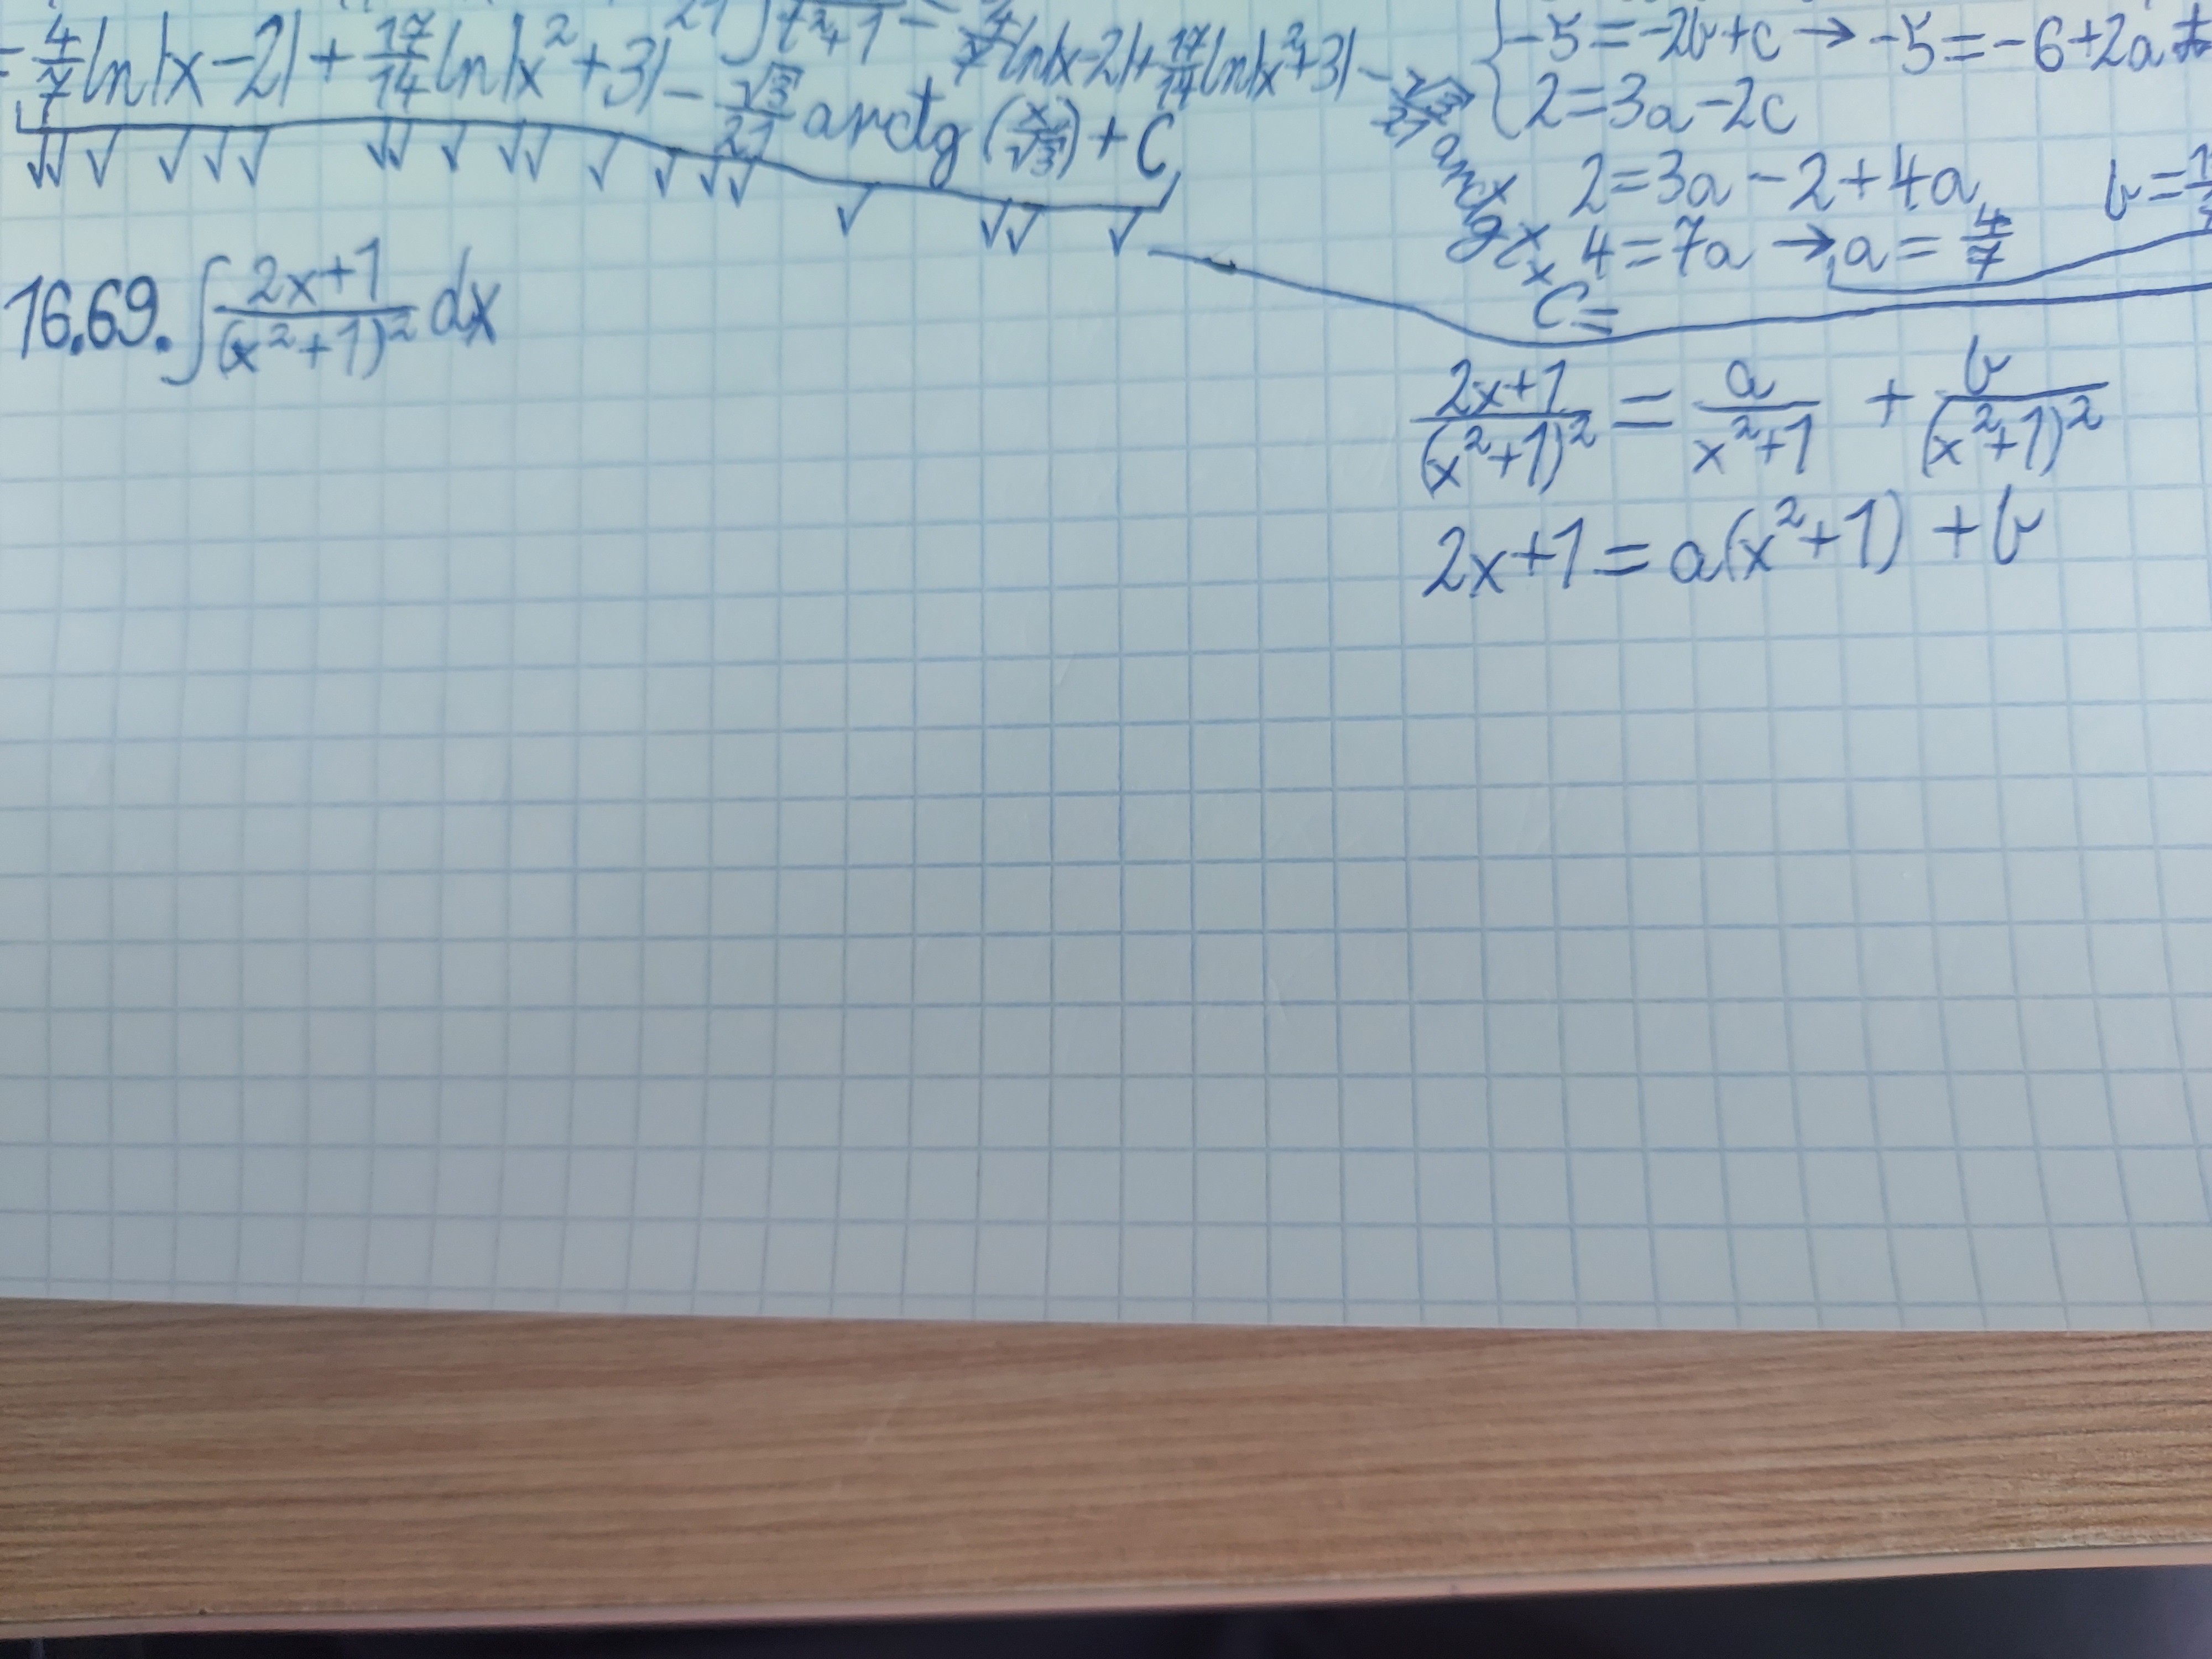 = 4/7 ln|x-2| + 17/14 ln|x²+3| - √3/21 arctg (x/√3) + C
= 4/7 ln|x-2| + 17/14 ln|x²+3| -
-5=-2b+c → -5=-6+2a
2=3a-2c
2=3a-2+4a
4=7a → a=4/7
C=
16.69. ∫ (2x+1)/(x²+1)² dx
(2x+1)/(x²+1)² = a/(x²+1) + b/(x²+1)²
2x+1=a(x²+1)+b